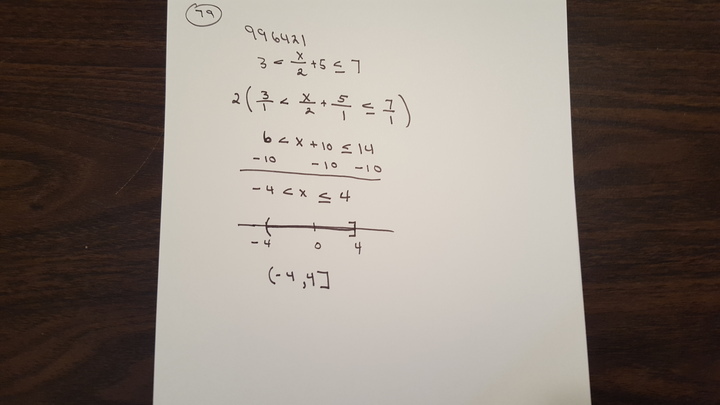 79
996421
3 < x/2 + 5 ≤ 7
2 ( 3/1 < x/2 + 5/1 ≤ 7/1 )
6 < x + 10 ≤ 14
-10 -10 -10
-4 < x ≤ 4
( ]
-4 0 4
(-4, 4]